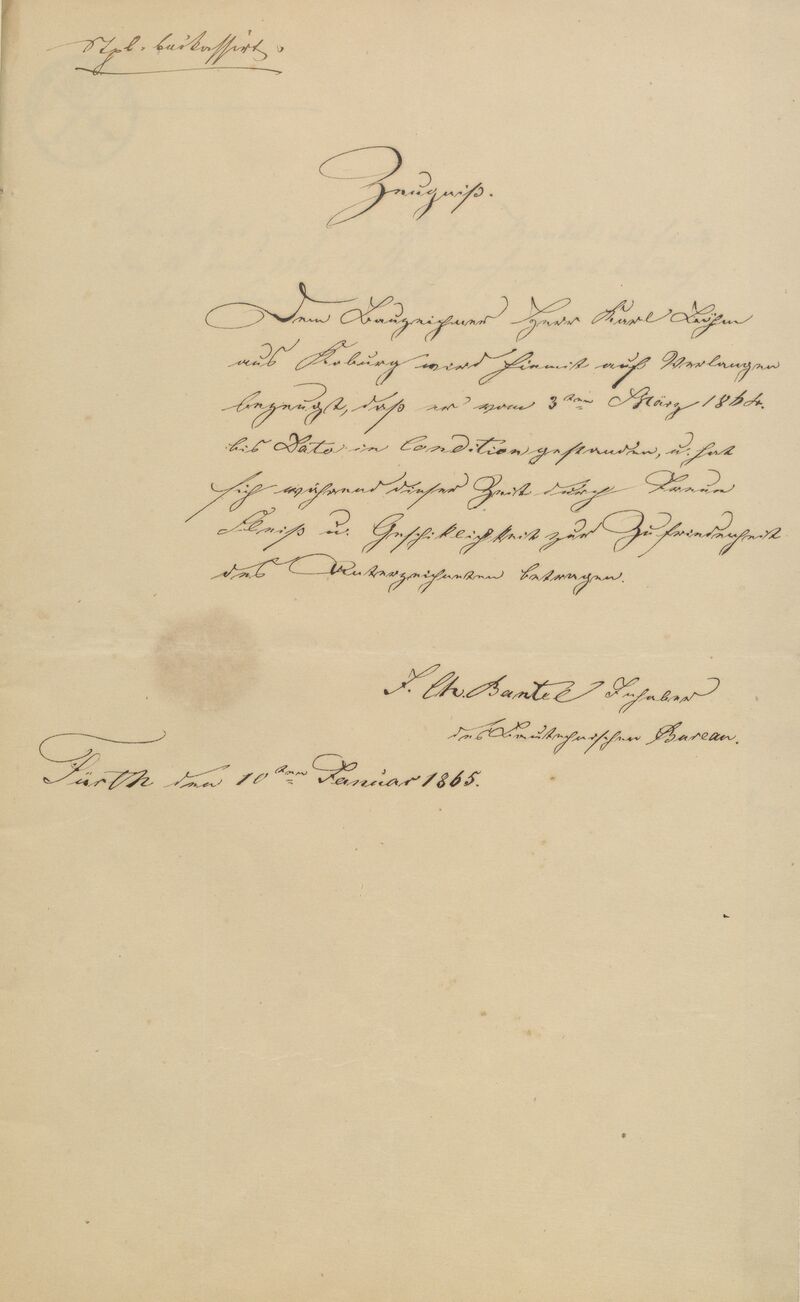 Zeugniß.
Dem Bauzeichner Herr Karl Böhm
aus Koburg wird hiemit auf Verlangen
bezeugt, daß er vom 3ten März 1864.
bis Dato in Condition gestanden, u. hat
sich während dieser Zeit durch Treue
Fleiß u. Geschiklichkeit zur Zufriedenheit
des Unterzeichneten betragen.
J. Ch. Bantel Inhaber
des Bautechnischen Bureau.
Fürth den 10ten Januar 1865.